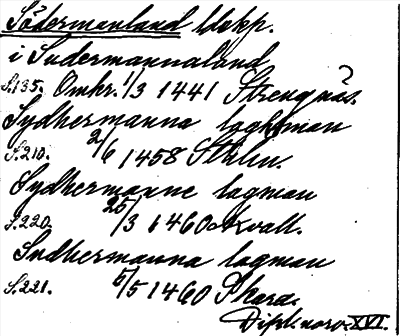 Södermanland ldskp.
i Sudermannaland
S.135. Omkr. 1/3 1441 Strengnäs. ?
Sydhermanna laghman
S.210. 2/6 1458 Sthlm.
Sydhermanne lagman
S.220. 25/3 1460
Sudhermanna lagman
S.221. 5/5 1460 Skara.
Dipl. norv. XVI.